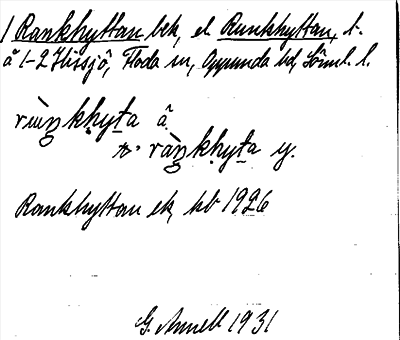 1 Rankhyttan bek, el. Runkhyttan, t.
å 1-2 Hissjö, Floda sn, Oppunda hd, Söml. l.
rùŋkhyta å
ràŋkhyta y.
Rankhyttan ek, hb 1926
G. Arnell 1931